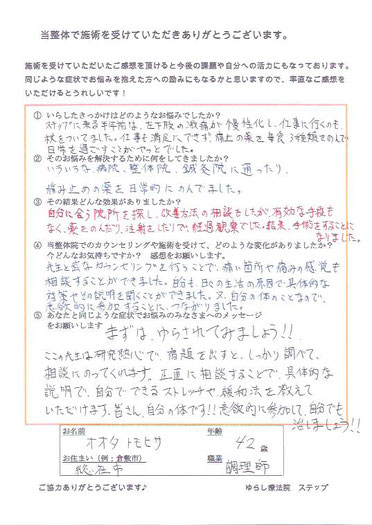 当整体で施術を受けていただきありがとうございます。
施術を受けていただいたご感想を頂けると今後の課題や自分への活力にもなっております。
同じような症状でお悩みを抱えた方への励みにもなるかと思いますので、率直なご感想を
いただけるとうれしいです！
① いらしたきっかけはどのようなお悩みでしたか？
ステップに来る半年前は、左下肢の激痛が慢性化し、仕事に行くのも
杖をついてました。仕事も満足にできず、痛止の薬を毎食3種類をのんで
日常を過ごすことがやっとでした。
② そのお悩みを解決するために何をしてきましたか？
いろいろな病院、整体院、鍼灸院に通ったり、
痛み止めの薬を日常的にのんでました。
③ その結果どんな効果がありましたか？
自分に合う院所を探し、改善方法の相談をしたが、有効な手段も
なく、薬をのんだり、注射をしたりで、経過観察でした。結果、手術をすることに
なりました。
④ 当整体院でのカウンセリングや施術を受けて、どのような変化がありましたか？
今どんなお気持ちですか？ 感想をお願いします。
先生と密なカウンセリングを行うことで、痛い箇所や痛みの感覚も
相談することができました。自分も日々の生活の原因で具体的な
対策などの説明を聞くことができました。又、自分の体のことなので、
意欲的に参加することにつながりました。
⑤ あなたと同じような症状でお悩みのみなさまへメッセージ
をお願いします
まずは、ゆらされてみましょう！！
ここの先生は研究熱心で、宿題を出すと、しっかり調べて、
相談にのってくれます。正直に相談することで、具体的な
説明で、自分でできるストレッチや緩和法を教えて
いただけます。皆さん、自分の体です！！意欲的に参加して、自分でも
治しましょう！！
お名前
オオタ トモヒサ
年齢
42歳
お住まい（例：倉敷市）
総社市
職業
調理師
ご協力ありがとうございます♪
ゆらし療法院 ステップ